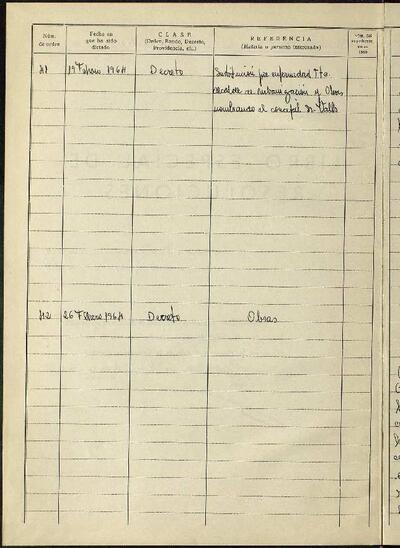 Núm. de orden
Fecha en que ha sido dictado
CLASE
(Orden, Bando, Decreto, Providencia, etc.)
REFERENCIA
(Materia o persona interesada)
41 19 Febrero 1964 Decreto Sustitución por enfermedad Tte.
alcalde de Urbanización y Obras
nombrando al concejal Sr. Valls
42 26 Febrero 1964 Decreto Obras